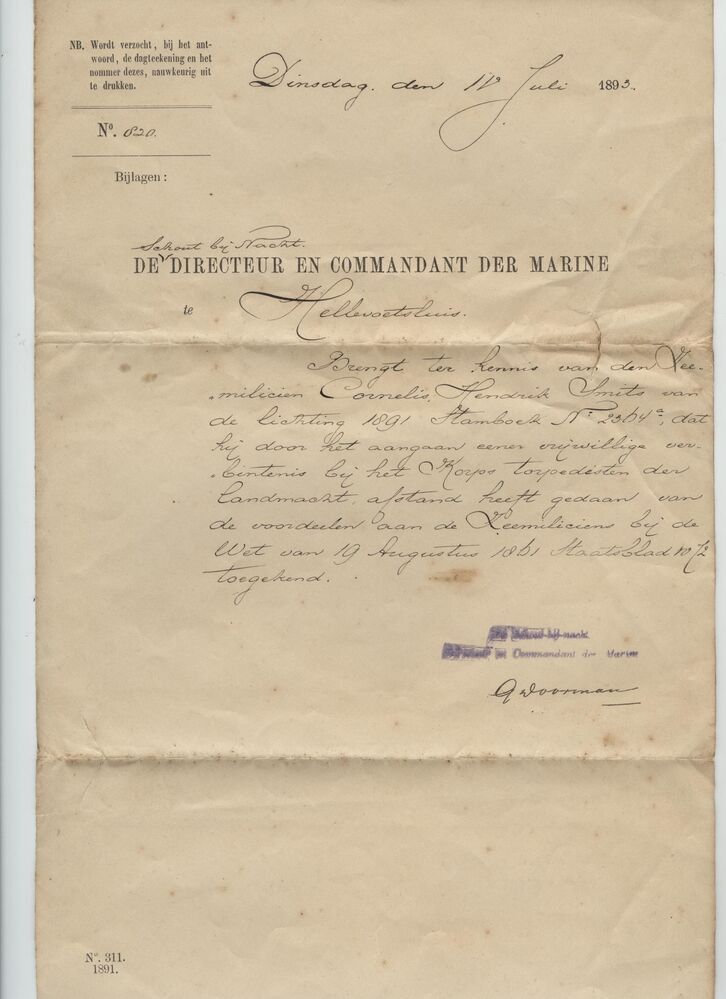 NB. Wordt verzocht, bij het ant-
woord, de dagteekening en het
nommer dezes, nauwkeurig uit
te drukken.
Dinsdag. den 11 Juli 1893.
No. 820.
Bijlagen:
Schout bij Nacht.
DE DIRECTEUR EN COMMANDANT DER MARINE
te Hellevoetsluis.
Brengt ter kennis van den Zee-
milicien Cornelis, Hendrik Smits van
de lichting 1891 Stamboek No. 2364a, dat
hij door het aangaan eener vrijwillige ver-
bintenis bij het Korps torpedisten der
landmacht, afstand heeft gedaan van
de voordeelen aan de Zeemiliciens bij de
Wet van 19 Augustus 1861 Staatsblad No 72
toegekend.
De Schout-bij-nacht
Directeur en Commandant der Marine
G Doorman
No. 311.
1891.